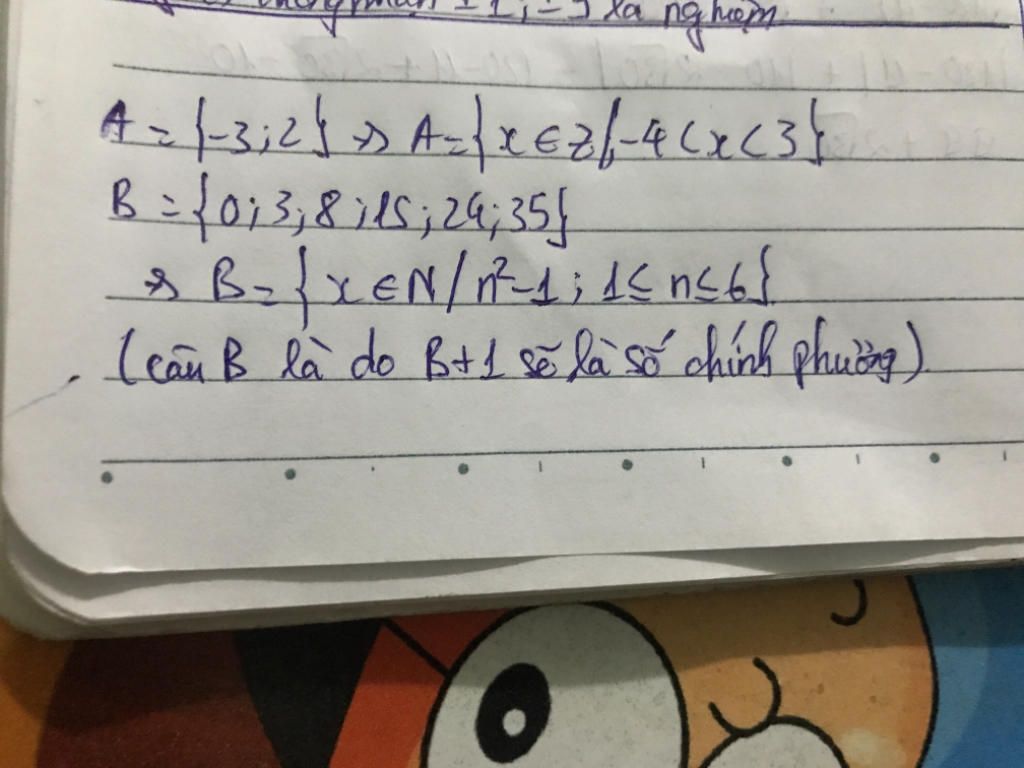 xạ nghiệm
A = {-3; 2} => A = {x ∈ Z / -4 < x < 3}
B = {0; 3; 8; 15; 24; 35}
=> B = {x ∈ N / n² - 1; 1 ≤ n ≤ 6}
(câu B là do B + 1 sẽ là số chính phương)